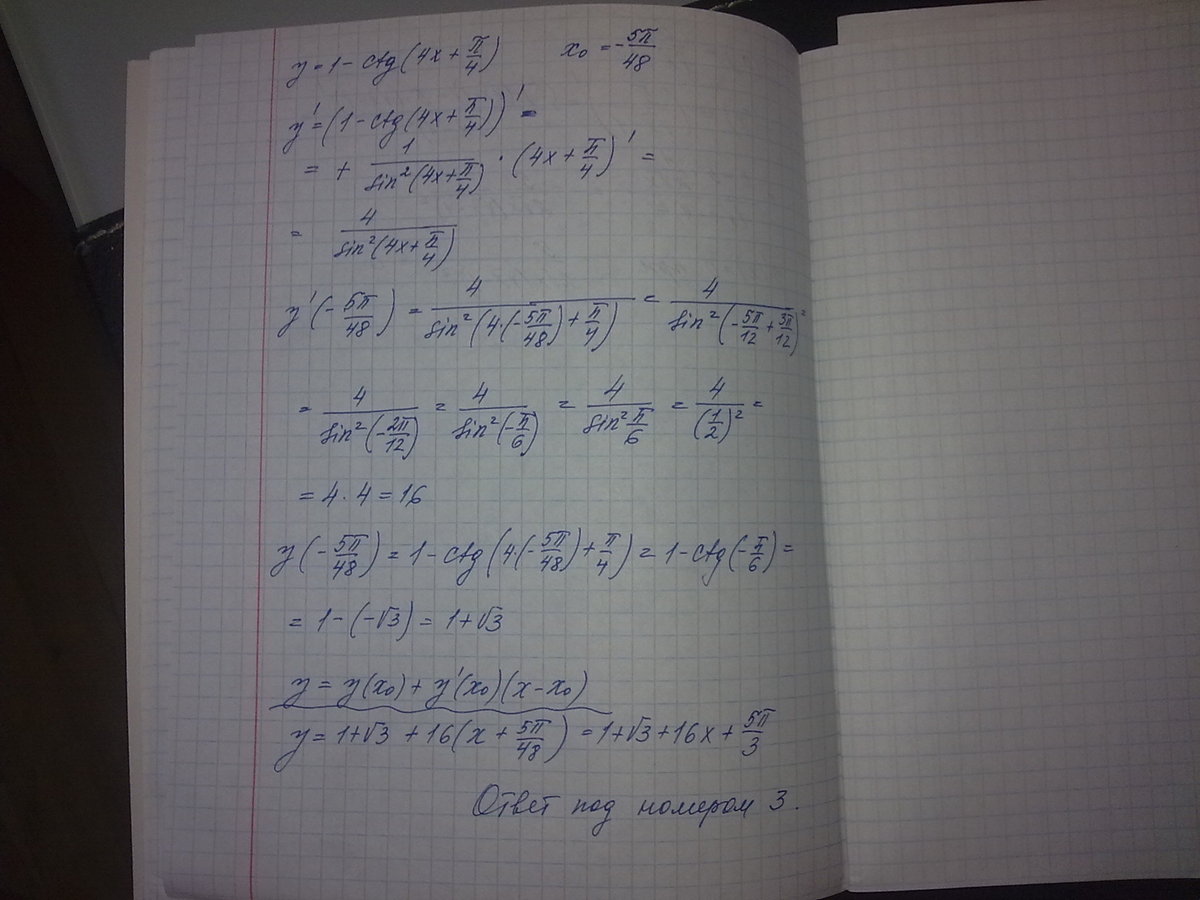 y = 1 - ctg(4x + π/4)   x₀ = -5π/48
y' = (1 - ctg(4x + π/4))' =
= + 1/sin²(4x + π/4) · (4x + π/4)' =
= 4/sin²(4x + π/4)
y'(-5π/48) = 4/sin²(4·(-5π/48) + π/4) = 4/sin²(-5π/12 + 3π/12) =
= 4/sin²(-2π/12) = 4/sin²(-π/6) = 4/sin² π/6 = 4/(1/2)² =
= 4 · 4 = 16
y(-5π/48) = 1 - ctg(4·(-5π/48) + π/4) = 1 - ctg(-π/6) =
= 1 - (-√3) = 1 + √3
y = y(x₀) + y'(x₀)(x - x₀)
y = 1 + √3 + 16(x + 5π/48) = 1 + √3 + 16x + 5π/3
Ответ под номером 3.